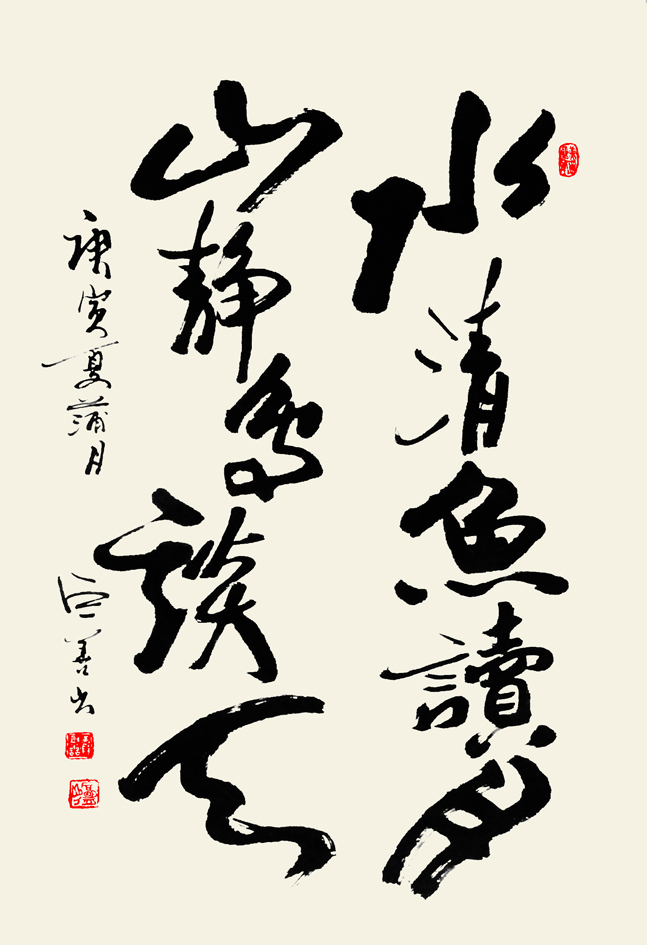 水清魚讀月
山靜鳥談天
庚寅夏蒲月
善書